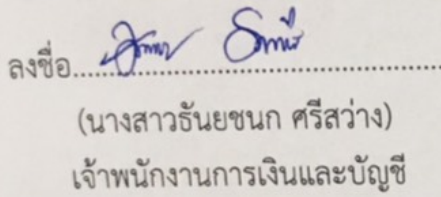 ลงชื่อ........................................
(นางสาวธันยชนก ศรีสว่าง)
เจ้าพนักงานการเงินและบัญชี